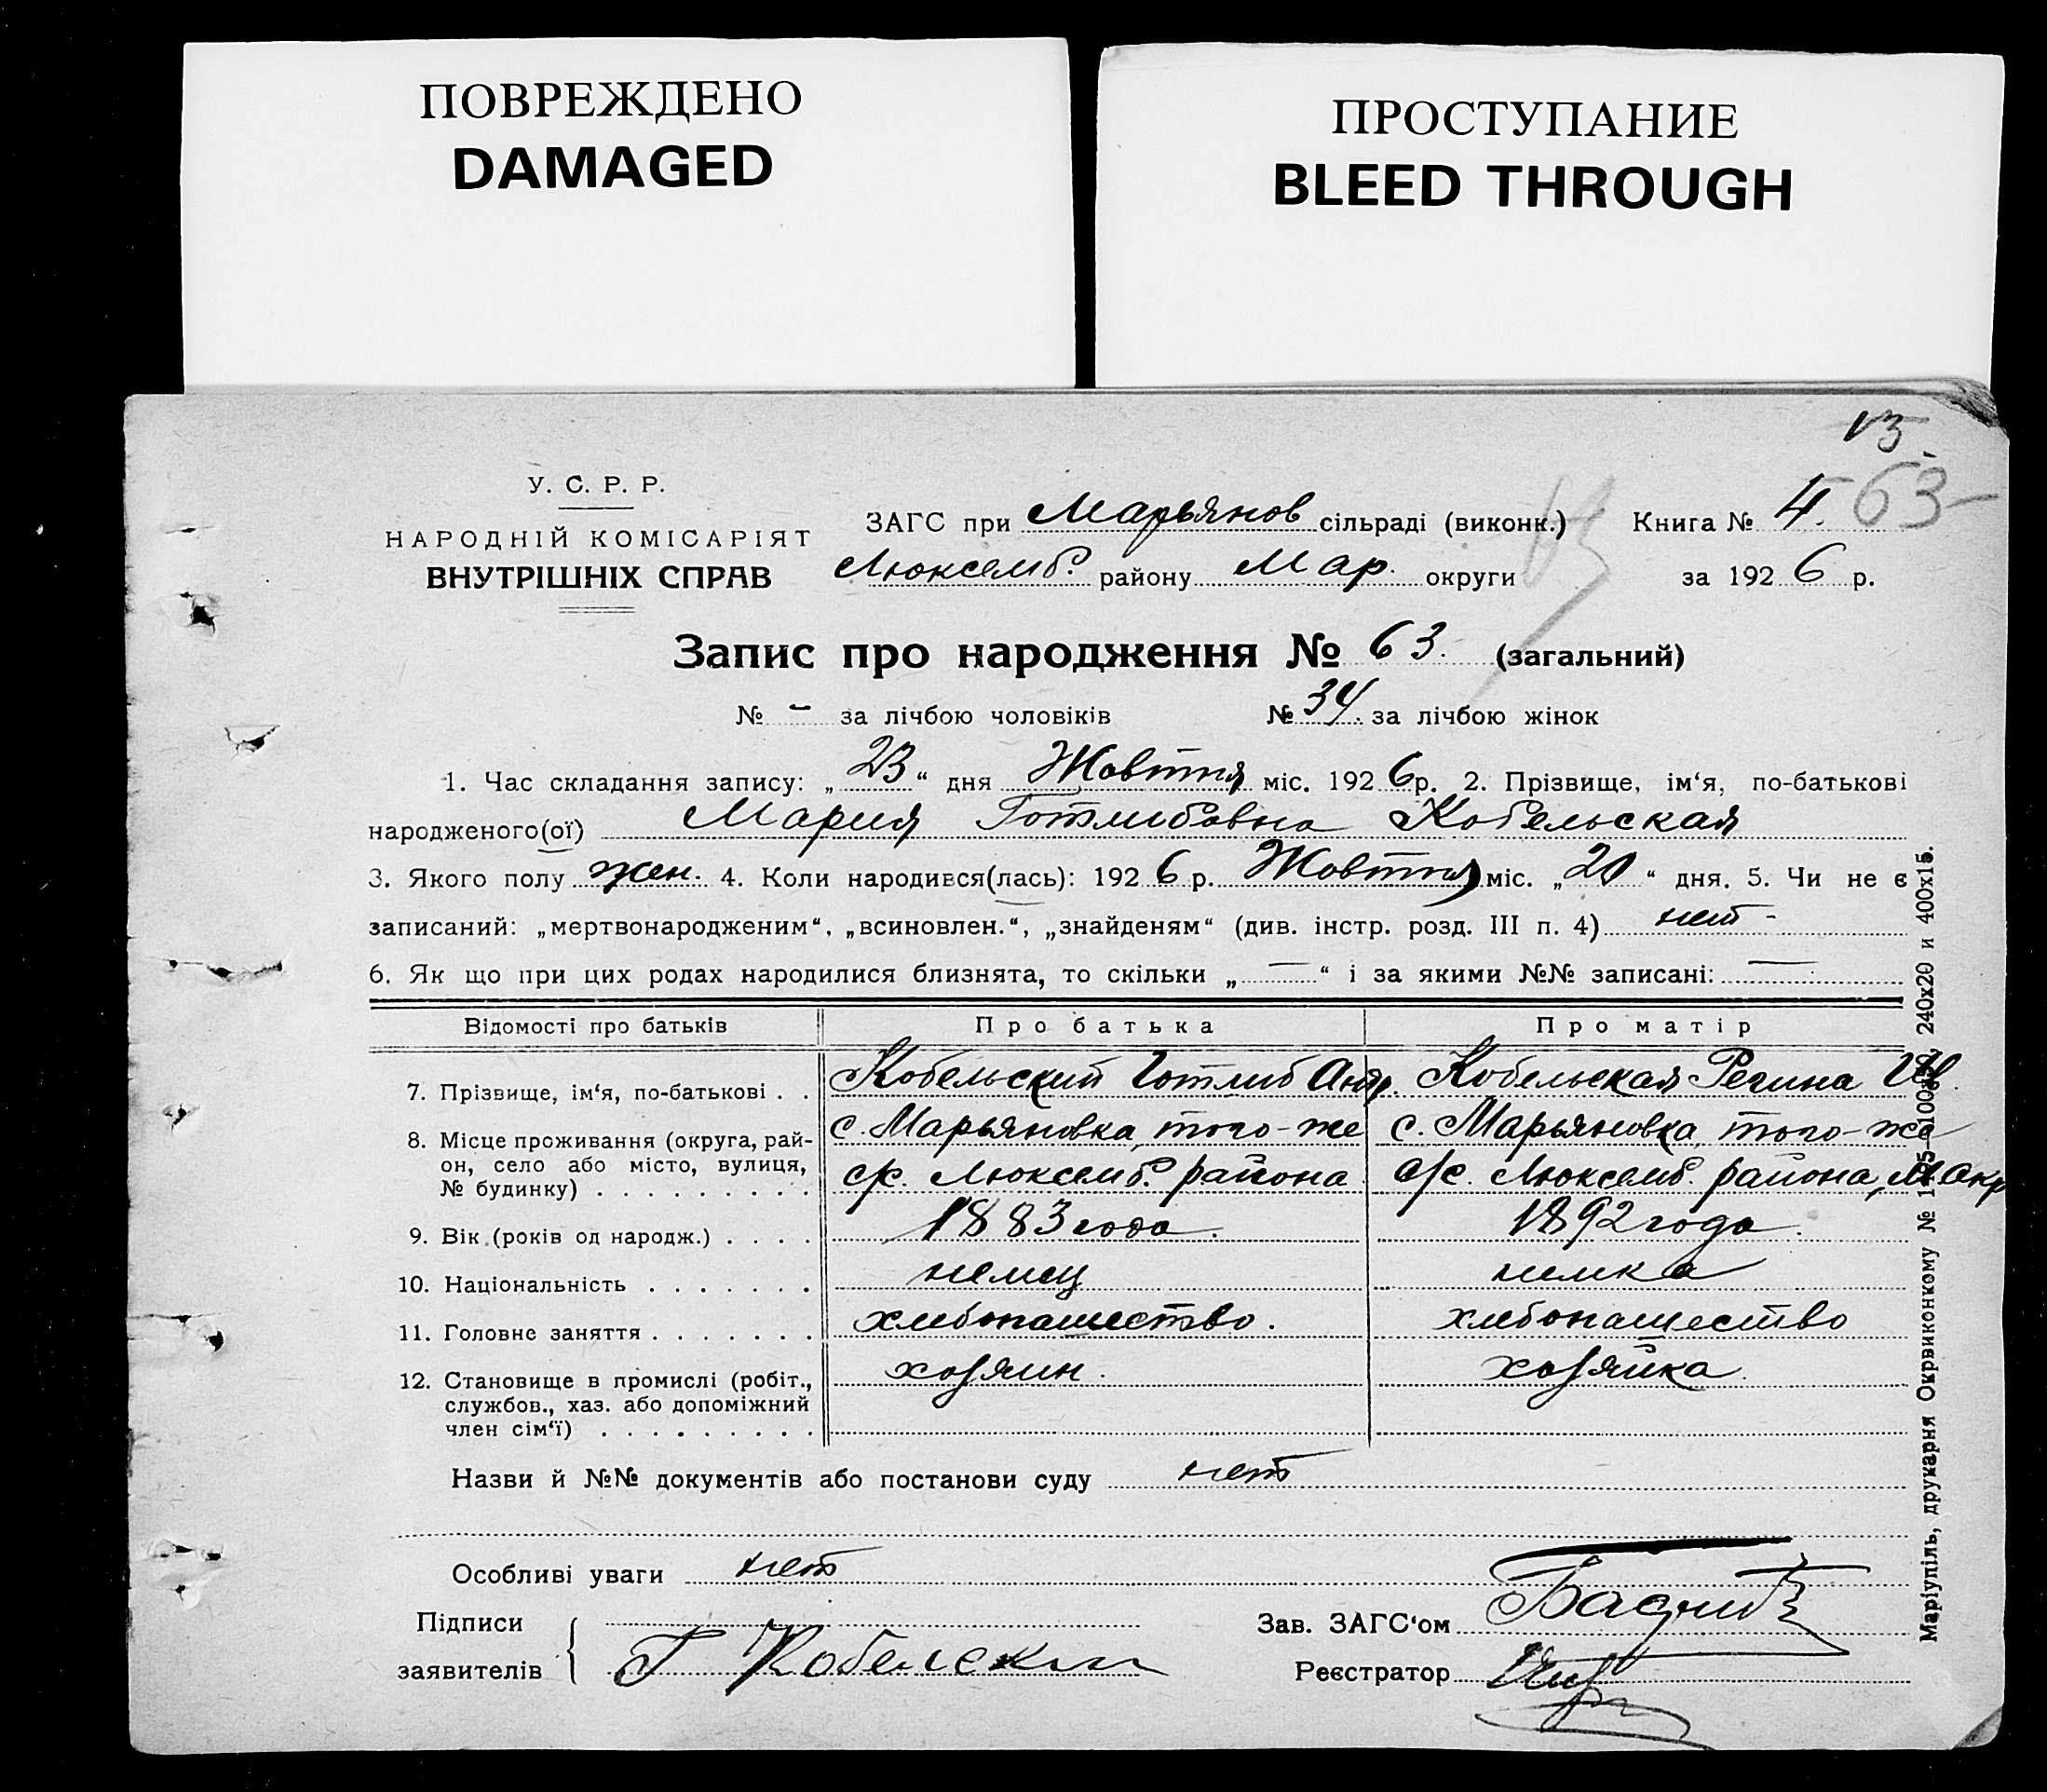 ПОВРЕЖДЕНО
DAMAGED
ПРОСТУПАНИЕ
BLEED THROUGH
13,
63-
У. С. Р. Р.
НАРОДНІЙ КОМІСАРІЯТ
ВНУТРІШНІХ СПРАВ
ЗАГС при Марьянов сільраді (виконк.) Книга № 4.
Люксемб. району Мар. округи за 1926 р.
63
Запис про народження № 63. (загальний)
№ - за лічбою чоловіків № 34. за лічбою жінок
1. Час складання запису: „23“ дня Жовтня міс. 1926 р. 2. Прізвище, ім‘я, по-батькові
народженого(ої) Мария Готлибовна Кобельская
3. Якого полу жен. 4. Коли народився(лась): 1926 р. Жовтня міс. „20“ дня. 5. Чи не є
записаний: „мертвонародженим“, „всиновлен.“, „знайденям“ (див. інстр. розд. III п. 4) нет -
6. Як що при цих родах народилися близнята, то скільки „—“ і за якими №№ записані: —
Відомості про батьків Про батька Про матір
7. Прізвище, ім‘я, по-батькові . . Кобельский Готлиб Андр. Кобельская Регина
8. Місце проживання (округа, рай- с. Марьяновка, того-же с. Марьяновка, того-же
он, село або місто, вулиця, с/с. Люксемб. района с/с. Люксемб. района, М окр
№ будинку) . . . . . . . . .
9. Вік (років од народж.) . . . . 1883 года. 1892 года.
10. Національність . . . . . . . немец немка
11. Головне заняття . . . . . . . хлебопашество. хлебопашество
12. Становище в промислі (робіт., хозяин. хозяйка.
службов., хаз. або допоміжний
член сім‘ї) . . . . . . . . .
Назви й №№ документів або постанови суду нет
Особливі уваги нет
Підписи
заявителів Г Кобельскии
Зав. ЗАГС‘ом
Реєстратор
Маріупіль, друкарня Окрвиконкому № 240х20 и 400х15.